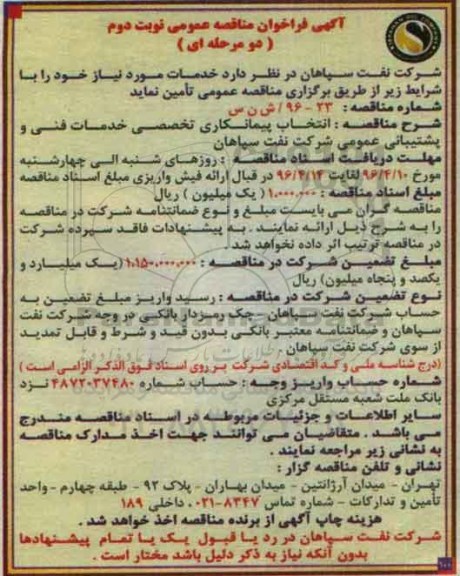 آگهی فراخوان مناقصه عمومی نوبت دوم
( دو مرحله ای )
شرکت نفت سپاهان در نظر دارد خدمات مورد نیاز خود را با
شرایط زیر از طریق برگزاری مناقصه عمومی تأمین نماید
شماره مناقصه : ۲۳ - ۹۶ / ش ن س
شرح مناقصه : انتخاب پیمانکاری تخصصی خدمات فنی و
پشتیبانی عمومی شرکت نفت سپاهان
مهلت دریافت اسناد مناقصه : روزهای شنبه الی چهارشنبه
مورخ ۹۶/۴/۱۰ لغایت ۹۶/۴/۱۴ در قبال ارائه فیش واریزی مبلغ اسناد مناقصه
مبلغ اسناد مناقصه : ۱،۰۰۰،۰۰۰ ( یک میلیون ) ریال
مناقصه گران می بایست مبلغ و نوع ضمانتنامه شرکت در مناقصه
را به شرح ذیل ارائه نمایند . به پیشنهادات فاقد سپرده شرکت
در مناقصه ترتیب اثر داده نخواهد شد .
مبلغ تضمین شرکت در مناقصه : ۱،۱۵۰،۰۰۰،۰۰۰ (یک میلیارد و
یکصد و پنجاه میلیون) ریال
نوع تضمین شرکت در مناقصه : رسید واریز مبلغ تضمین به
حساب شرکت نفت سپاهان - چک رمزدار بانکی در وجه شرکت نفت
سپاهان و ضمانتنامه معتبر بانکی بدون قید و شرط و قابل تمدید
از سوی شرکت نفت سپاهان .
(درج شناسه ملی و کد اقتصادی شرکت بر روی اسناد فوق الذکر الزامی است )
شماره حساب واریز وجه : حساب شماره ۴۸۷۲۰۳۷۴۸۰ نزد
بانک ملت شعبه مستقل مرکزی
سایر اطلاعات و جزئیات مربوطه در اسناد مناقصه مندرج
می باشد . متقاضیان می توانند جهت اخذ مدارک مناقصه
به نشانی زیر مراجعه نمایند .
نشانی و تلفن مناقصه گزار :
تهران - میدان آرژانتین - میدان بهاران - پلاک ۹۲ - طبقه چهارم - واحد
تأمین و تدارکات - شماره تماس ۸۳۴۷-۰۲۱ داخلی ۱۸۹
هزینه چاپ آگهی از برنده مناقصه اخذ خواهد شد .
شرکت نفت سپاهان در رد یا قبول یک یا تمام پیشنهادها
بدون آنکه نیاز به ذکر دلیل باشد مختار است .